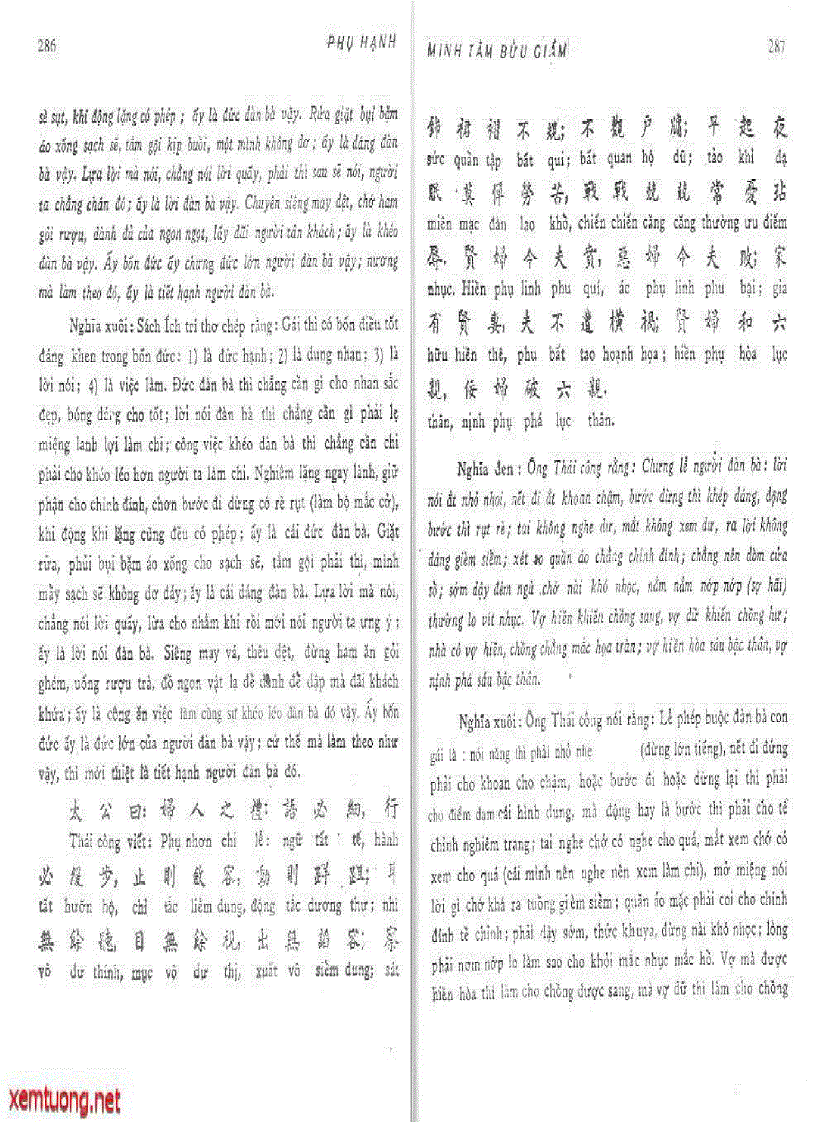 286
PHỤ HẠNH
sẽ sụt, khi động lặng có phép ; ấy là đức đàn bà vậy. Rửa giặt bụi bặm
áo xống sạch sẽ, tắm gội kịp buổi, một mình không dơ ; ấy là dáng đàn
bà vậy. Lựa lời mà nói, chẳng nói lời quấy, phải thì sau sẽ nói, người
ta chẳng chán đó ; ấy là lời đàn bà vậy. Chuyên siêng may dệt, chớ ham
gỏi rượu, dành đủ của ngon ngọt, lấy đãi người tân khách ; ấy là khéo
đàn bà vậy. Ấy bốn đức ấy chưng đức lớn người đàn bà vậy ; nương
mà làm theo đó, ấy là tiết hạnh người đàn bà.
Nghĩa xuôi : Sách Ích trí thơ chép rằng : Gái thì có bốn điều tốt
đáng khen trong bốn đức : 1) là đức hạnh ; 2) là dung nhan ; 3) là
lời nói ; 4) là việc làm. Đức đàn bà thì chẳng cần gì cho nhan sắc
đẹp, bóng dáng cho tốt ; lời nói đàn bà thì chẳng cần gì phải lẹ
miệng lanh lợi làm chi ; công việc khéo đàn bà thì chẳng cần chi
phải cho khéo léo hơn người ta làm chi. Nghiêm lặng ngay lành, giữ
phận cho chỉnh đính, chơn bước đi dừng có rè rụt (làm bộ mắc cỡ),
khi động khi lặng cũng đều có phép ; ấy là cái đức đàn bà. Giặt
rửa, phủi bụi bặm áo xống cho sạch sẽ, tắm gội phải thì, mình
mẩy sạch sẽ không dơ dáy ; ấy là cái dáng đàn bà. Lựa lời mà nói,
chẳng nói lời quấy, lừa cho nhằm khi rồi mới nói người ta ưng ý ;
ấy là lời nói đàn bà. Siêng may vá, thêu dệt, đừng ham ăn gỏi
ghém, uống rượu trà, đồ ngon vật lạ để dành đề dập mà đãi khách
khứa ; ấy là công ăn việc làm cùng sự khéo léo đàn bà đó vậy. Ấy bốn
đức ấy là đức lớn của người đàn bà vậy ; cứ thế mà làm theo như
vậy, thì mới thiệt là tiết hạnh người đàn bà đó.
太 公 曰 : 婦 人 之 禮 : 語 必 細, 行
Thái công viết : Phụ nhơn chi lễ : ngữ tất tế, hành
必 緩 步, 止 則 斂 容 ; 動 則 ; 耳
tất huỡn bộ, chỉ tắc liễm dung, động tắc dương thư ; nhĩ
無 餘 聽, 目 無 餘 視, 出 無 諂 容 ; 察
vô dư thính, mục vô dư thị, xuất vô siễm dung ; sát
MINH TÂM BỬU GIÁM
287
飾 裙 褶 不 規 ; 不 觀 戶 牖 ; 早 起 夜
sức quần tập bất qui ; bất quan hộ dũ ; tảo khỉ dạ
眠 莫 憚 勞 苦, 戰 戰 兢 兢 常 憂 玷
miên mạc đán lao khổ, chiến chiến căng căng thường ưu điếm
辱. 賢 婦 令 夫 貴, 惡 婦 令 夫 敗 ; 家
nhục. Hiền phụ linh phu quí, ác phụ linh phu bại ; gia
有 賢 妻, 夫 不 遭 橫 禍 ; 賢 婦 和 六
hữu hiền thê, phu bất tao hoạnh họa ; hiền phụ hòa lục
親, 佞 婦 破 六 親.
thân, nịnh phụ phá lục thân.
Nghĩa đen : Ông Thái công rằng : Chưng lễ người đàn bà : lời
nói ắt nhỏ nhoi, nết đi ắt khoan chậm, bước dừng thì khép dáng, động
bước thì rụt rè ; tai không nghe dư, mắt không xem dư, ra lời không
dáng gièm siễm ; xét so quần áo chẳng chỉnh đính ; chẳng nên dòm cửa
sổ ; sớm dậy đêm ngủ chớ nài khó nhọc, nắm nắm nớp nớp (sợ hãi)
thường lo vít nhục. Vợ hiền khiến chồng sang, vợ dữ khiến chồng hư ;
nhà có vợ hiền, chồng chẳng mắc họa tràn ; vợ hiền hòa sáu bậc thân, vợ
nịnh phá sáu bậc thân.
Nghĩa xuôi : Ông Thái công nói rằng : Lễ phép buộc đàn bà con
gái là : nói năng thì phải nhỏ nhẹ (đừng lớn tiếng), nết đi đứng
phải cho khoan cho chậm, hoặc bước đi hoặc dừng lại thì phải
cho điềm đạm cái hình dung, mà động hay là bước thì phải cho tề
chỉnh nghiêm trang ; tai nghe chớ có nghe cho quá, mắt xem chớ có
xem cho quá (cái mình nên nghe nên xem làm chi), mở miệng nói
lời gì chớ khá ra tuồng gièm siễm ; quần áo mặc phải coi cho chỉnh
đính tề chỉnh ; phải dậy sớm, thức khuya, đừng nài khó nhọc ; lòng
phải nơm nớp lo làm sao cho khỏi mắc nhục mắc hổ. Vợ mà được
hiền hòa thì làm cho chồng được sang, mà vợ dữ thì làm cho chồng
xemtuong.net